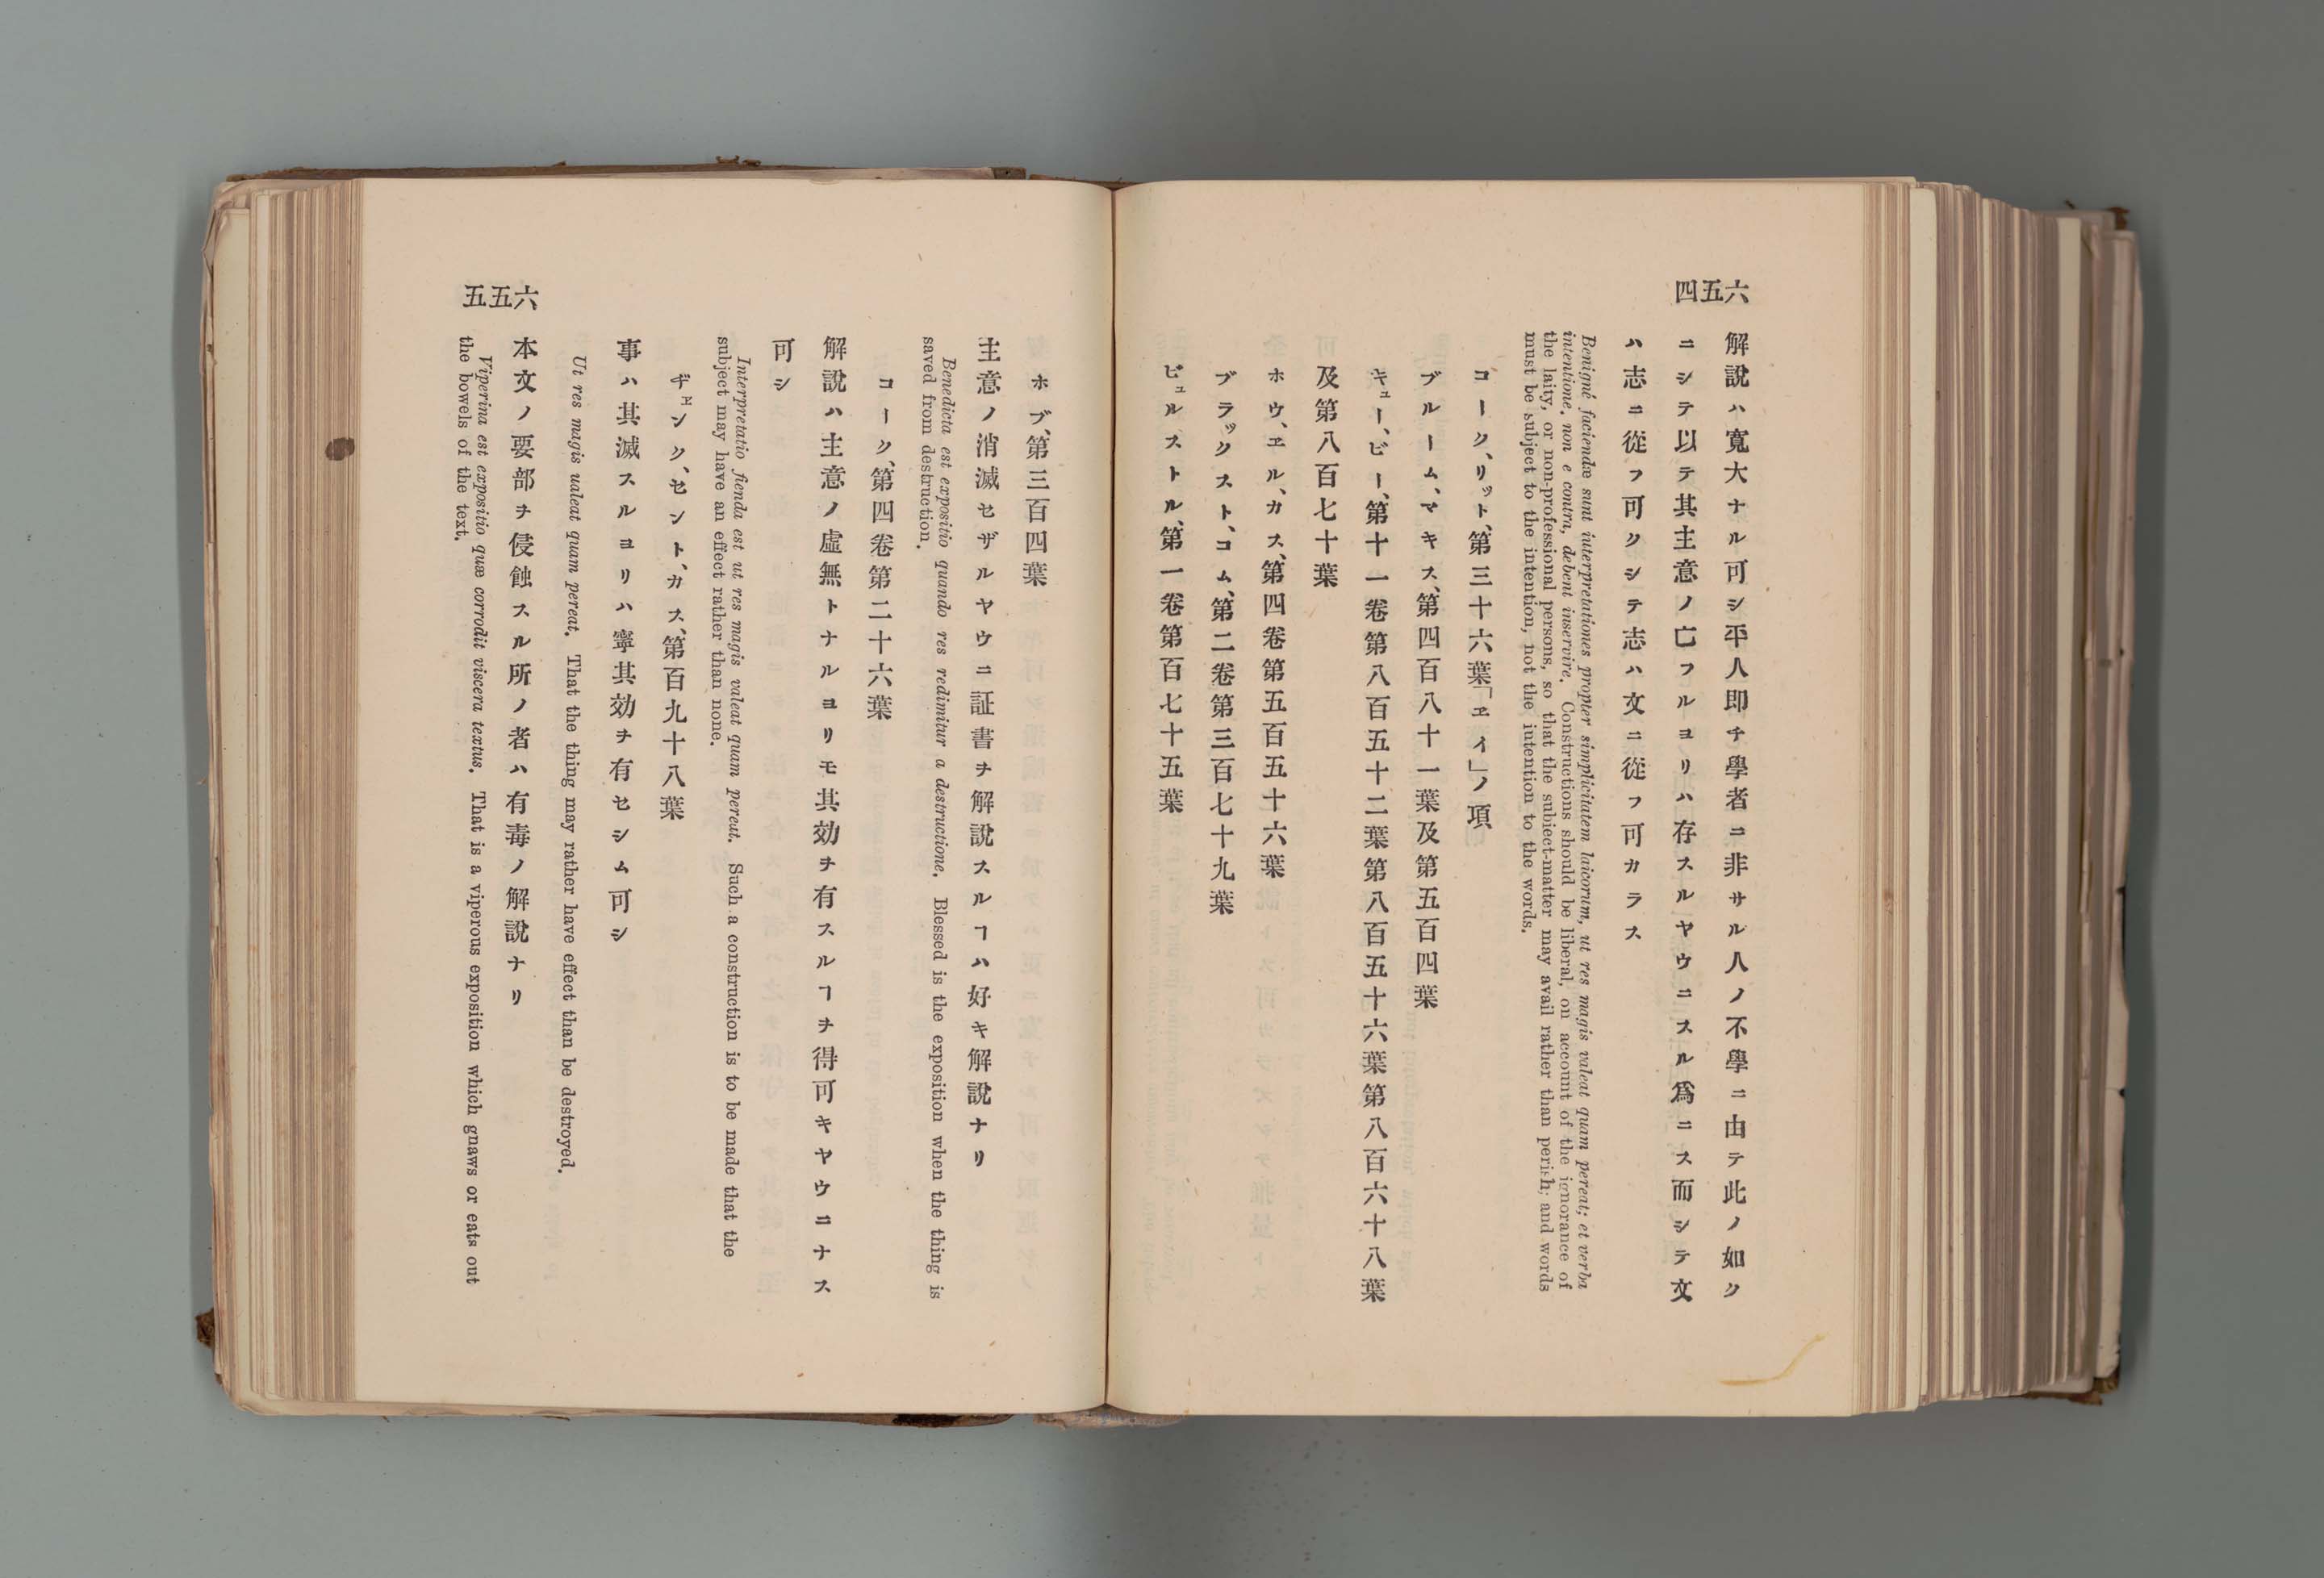 六五四
解說ハ寬大ナル可シ平人即チ學者ニ非サル人ノ不學ニ由テ此ノ如ク
ニシテ以テ其主意ノ亡フルヨリハ存スルヤウニスル爲ニス而シテ文
ハ志ニ從フ可クシテ志ハ文ニ從フ可カラス
Benigné faciendæ sunt interpretationes propter simplicitatem laicorum, ut res magis valeat quam pereat; et verba
intentione, non e contra, debent inservire. Constructions should be liberal, on account of the ignorance of
the laity, or non-professional persons, so that the subject-matter may avail rather than perish; and words
must be subject to the intention, not the intention to the words.
コーク、リット、第三十六葉「ヱイ」ノ項
ブルーム、マキス、第四百八十一葉及第五百四葉
キュー、ビー、第十一卷第八百五十二葉第八百五十六葉第八百六十八葉
及第八百七十葉
ホウ、ヱル、カス、第四卷第五百五十六葉
ブラックスト、コム、第二卷第三百七十九葉
ビュルストル、第一卷第百七十五葉
六五五
ホブ、第三百四葉
主意ノ消滅セザルヤウニ証書ヲ解說スルヿハ好キ解說ナリ
Benedicta est expositio quando res redimitur a destructione. Blessed is the exposition when the thing is
saved from destruction.
コーク、第四卷第二十六葉
解說ハ主意ノ虛無トナルヨリモ其効ヲ有スルヿヲ得可キヤウニナス
可シ
Interpretatio fienda est ut res magis valeat quam pereat. Such a construction is to be made that the
subject may have an effect rather than none.
ヂェンク、セント、カス、第百九十八葉
事ハ其滅スルヨリハ寧其効ヲ有セシム可シ
Ut res magis valeat quam pereat. That the thing may rather have effect than be destroyed.
本文ノ要部ヲ侵蝕スル所ノ者ハ有毒ノ解說ナリ
Viperina est expositio quæ corrodit viscera textus. That is a viperous exposition which gnaws or eats out
the bowels of the text.